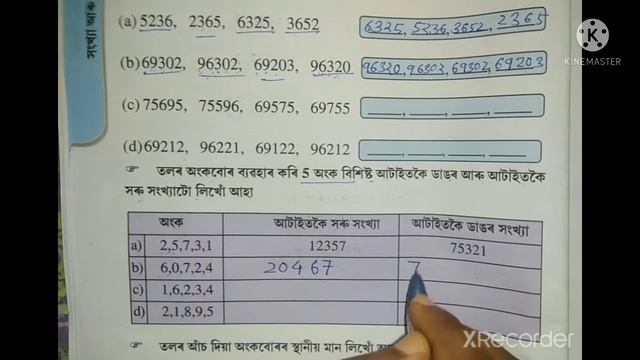 (a) 5236, 2365, 6325, 3652 6325, 5236, 3652, 2365
(b) 69302, 96302, 69203, 96320 96320, 96302, 69302, 69203
(c) 75695, 75596, 69575, 69755 __, __, __, __
(d) 69212, 96221, 69122, 96212 __, __, __, __
☞ তলৰ অংকবোৰ ব্যৱহাৰ কৰি 5 অংক বিশিষ্ট আটাইতকৈ ডাঙৰ আৰু আটাইতকৈ
সৰু সংখ্যাটো লিখোঁ আহা
অংক আটাইতকৈ সৰু সংখ্যা আটাইতকৈ ডাঙৰ সংখ্যা
a) 2,5,7,3,1 12357 75321
b) 6,0,7,2,4 20467 7
c) 1,6,2,3,4
d) 2,1,8,9,5
☞ তলৰ আঁচ দিয়া অংকবোৰৰ স্থানীয় মান লিখোঁ
KINEMASTER
XRecorder